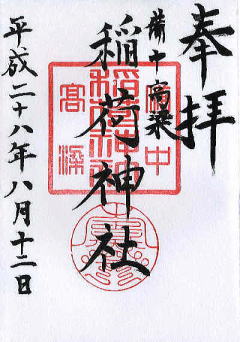 奉拝
備中高梁
稲荷神社
平成二十八年八月十二日
備中
高梁